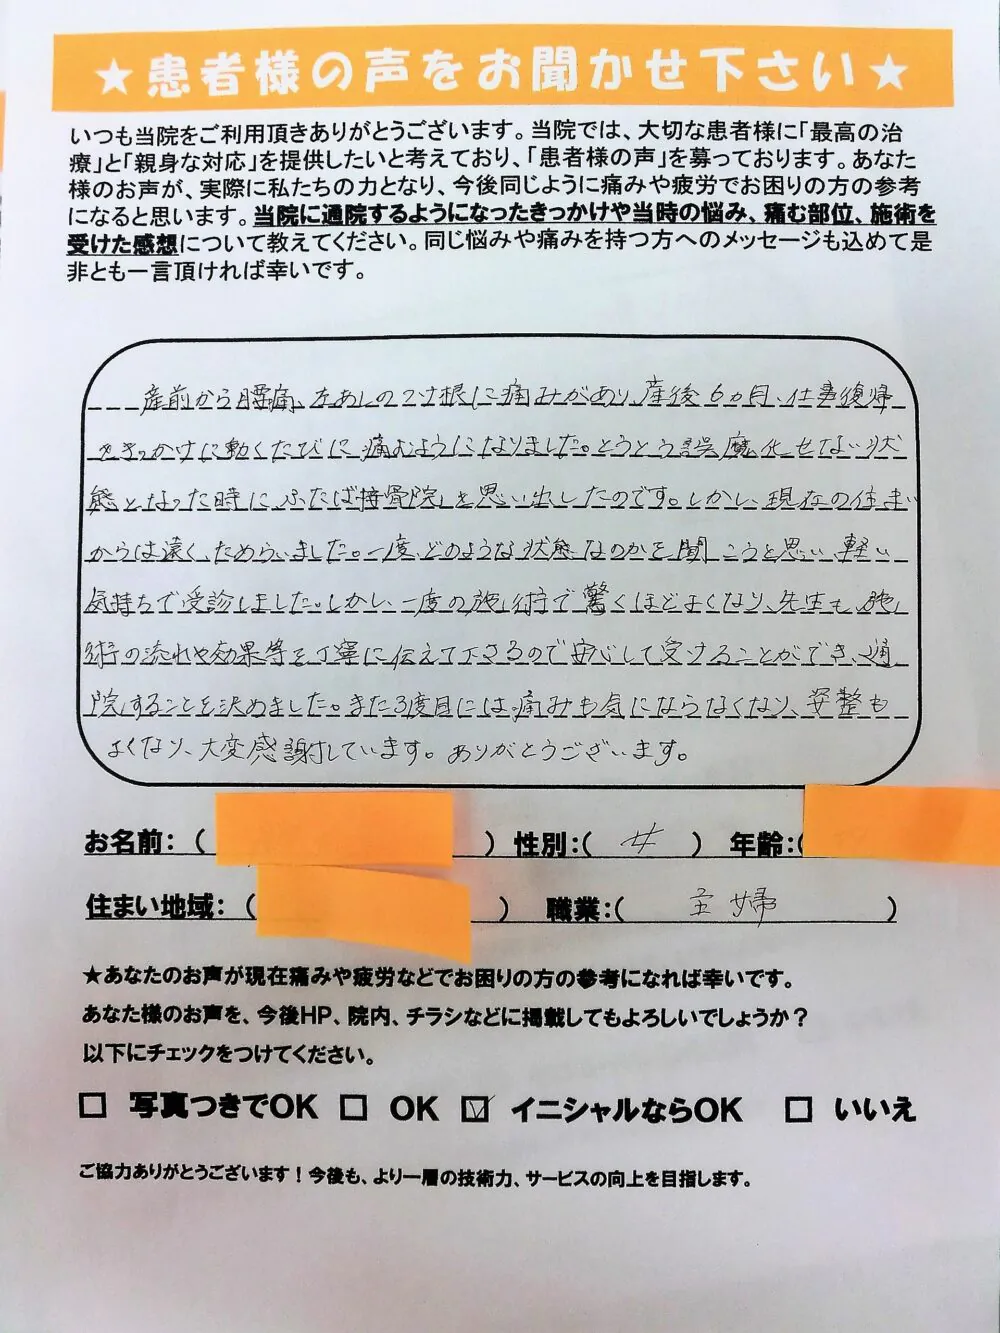 ★患者様の声をお聞かせ下さい★
いつも当院をご利用頂きありがとうございます。当院では、大切な患者様に「最高の治
療」と「親身な対応」を提供したいと考えており、「患者様の声」を募っております。あなた
様のお声が、実際に私たちの力となり、今後同じように痛みや疲労でお困りの方の参考
になると思います。当院に通院するようになったきっかけや当時の悩み、痛む部位、施術を
受けた感想について教えてください。同じ悩みや痛みを持つ方へのメッセージも込めて是
非とも一言頂ければ幸いです。
産前から腰痛、左あしのつけ根に痛みがあり、産後6ヵ月、仕事復帰
をきっかけに動くたびに痛むようになりました。とうとう誤魔化せない状
態となった時に、ふたば接骨院」を思い出したのです。しかし、現在の住まい
からは遠く、ためらいました。一度、どのような状態なのかを聞こうと思い、軽い
気持ちで受診しました。しかし、一度の施術で驚くほどよくなり、先生も施
術の流れや効果等を丁寧に伝えて下さるので安心して受けることができ、通
院することを決めました。また3度目には痛みも気にならなくなり、姿整も
よくなり、大変感謝しています。ありがとうございます。
お名前：（ ） 性別：（ 女 ） 年齢：（
住まい地域：（ ） 職業：（ 主婦 ）
★あなたのお声が現在痛みや疲労などでお困りの方の参考になれば幸いです。
あなた様のお声を、今後HP、院内、チラシなどに掲載してもよろしいでしょうか？
以下にチェックをつけてください。
□ 写真つきでOK □ OK ☑ イニシャルならOK □ いいえ
ご協力ありがとうございます！今後も、より一層の技術力、サービスの向上を目指します。